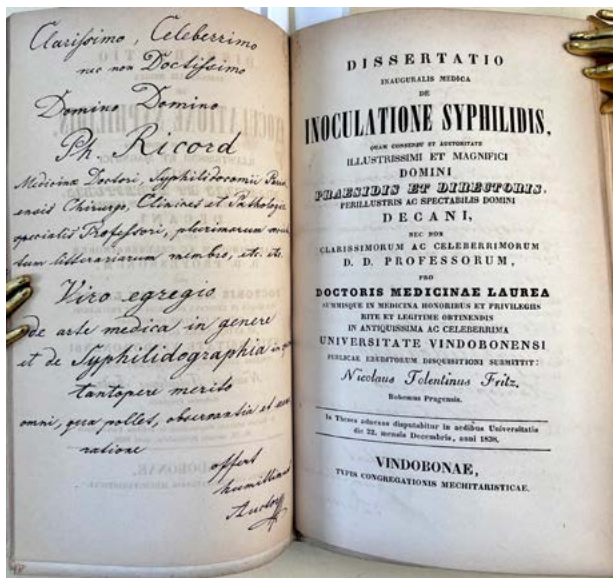 Clarissimo, Celeberrimo
nec non Doctissimo
Domino Domino
Ph. Ricord
Medicinae Doctori, Syphilidocomii
ensis Chirurgo, Clinices et Pathologiae
specialis Professori, plurimarum
tum litterariarum membro, etc. etc.
Viro egregio
de arte medica in genere
et de Syphilidographia in
tantopere merito
omni, qua pollet, observantia et
ratione
offert
humillimus
Auctor
DISSERTATIO
INAUGURALIS MEDICA
DE
INOCULATIONE SYPHILIDIS,
QUAM CONSENSU ET AUCTORITATE
ILLUSTRISSIMI ET MAGNIFICI
DOMINI
PRAESIDIS ET DIRECTORIS,
PERILLUSTRIS AC SPECTABILIS DOMINI
DECANI,
NEC NON
CLARISSIMORUM AC CELEBERRIMORUM
D. D. PROFESSORUM,
PRO
DOCTORIS MEDICINAE LAUREA
SUMMISQUE IN MEDICINA HONORIBUS ET PRIVILEGIIS
RITE ET LEGITIME OBTINENDIS
IN ANTIQUISSIMA AC CELEBERRIMA
UNIVERSITATE VINDOBONENSI
PUBLICAE ERUDITORUM DISQUISITIONI SUBMITTIT:
Nicolaus Tolentinus Fritz,
Bohemus Pragensis.
In Theses adnexas disputabitur in aedibus Universitatis
die 22. mensis Decembris, anni 1838.
VINDOBONAE,
TYPIS CONGREGATIONIS MECHITARISTICAE.